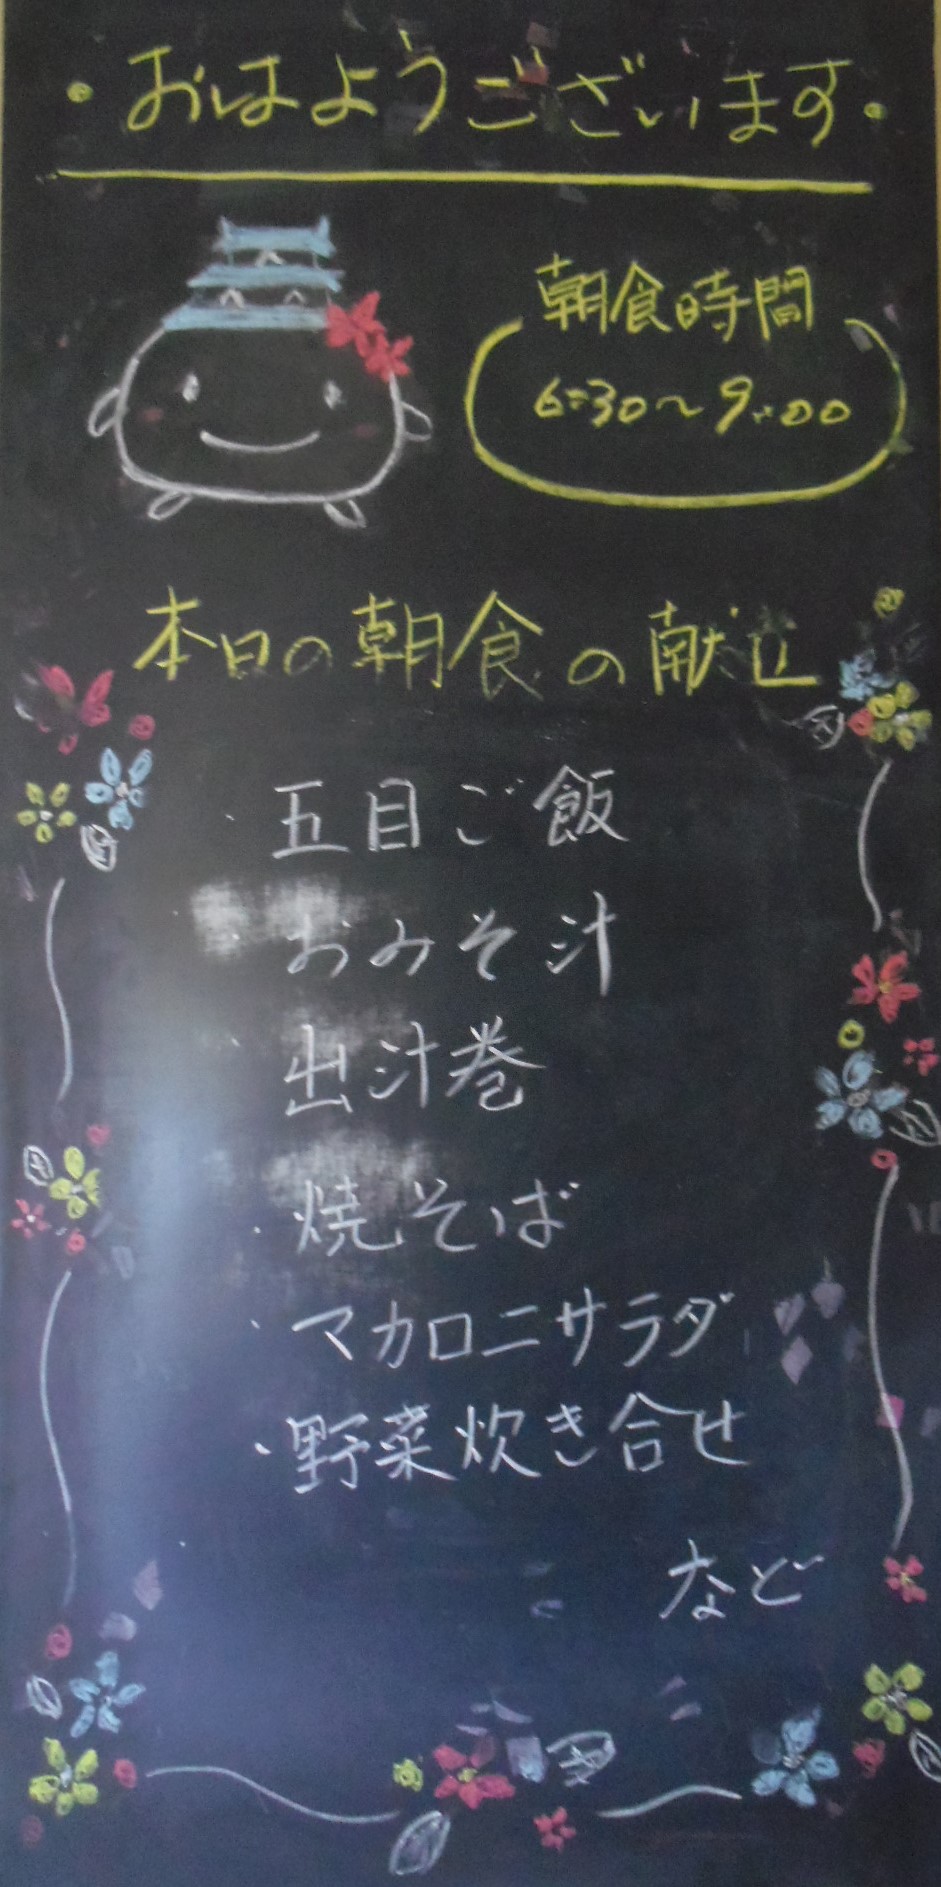 ・おはようございます・
朝食時間
6:30～9:00
本日の朝食の献立
・五目ご飯
・おみそ汁
・出汁巻
・焼そば
・マカロニサラダ
・野菜炊き合せ
など